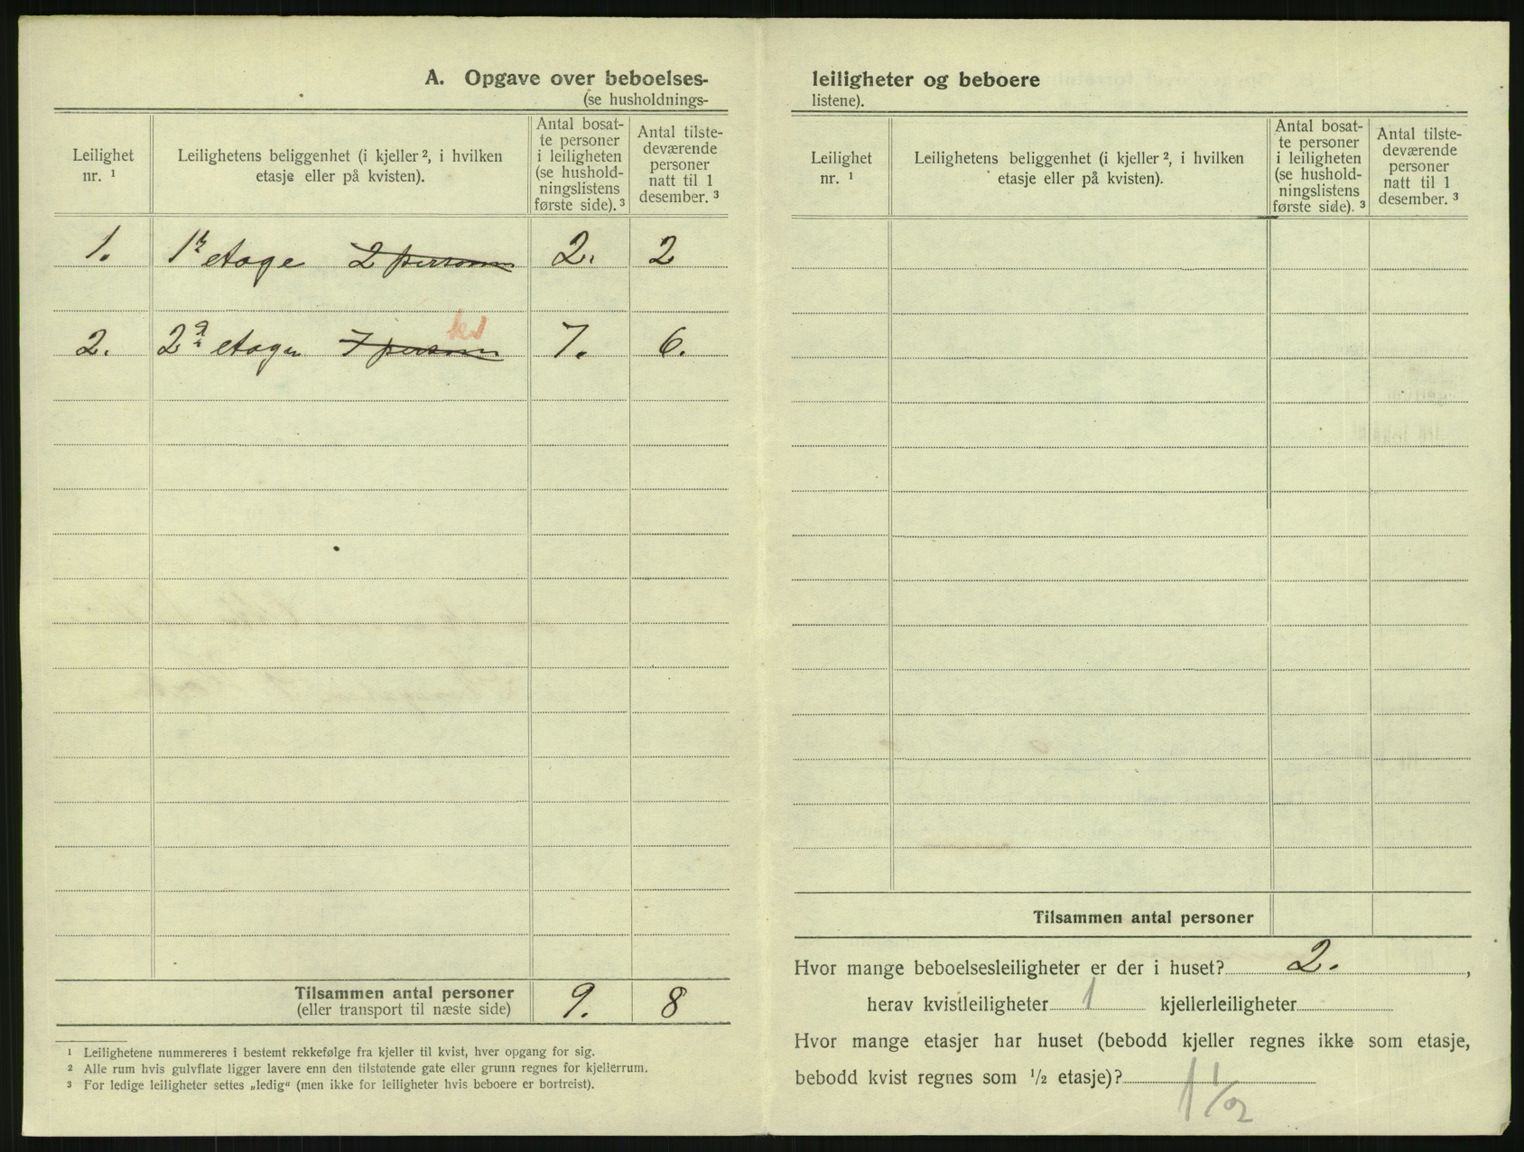 A. Opgave over beboelses-
(se husholdnings-
Leilighet
nr. ¹
Leilighetens beliggenhet (i kjeller ², i hvilken
etasje eller på kvisten).
Antal bosat-
te personer
i leiligheten
(se hushold-
ningslistens
første side). ³
Antal tilste-
deværende
personer
natt til 1
desember. ³
1. 1ste etage 2 person 2. 2
2. 2den etage 7 person 7. 6.
Tilsammen antal personer 9. 8
(eller transport til næste side)
¹ Leilighetene nummereres i bestemt rekkefølge fra kjeller til kvist, hver opgang for sig.
² Alle rum hvis gulvflate ligger lavere enn den tilstøtende gate eller grunn regnes for kjellerrum.
³ For ledige leiligheter settes „ledig“ (men ikke for leiligheter hvis beboere er bortreist).
leiligheter og beboere
listene).
Leilighet
nr. ¹
Leilighetens beliggenhet (i kjeller ², i hvilken
etasje eller på kvisten).
Antal bosat-
te personer
i leiligheten
(se hushold-
ningslistens
første side). ³
Antal tilste-
deværende
personer
natt til 1
desember. ³
Tilsammen antal personer
Hvor mange beboelsesleiligheter er der i huset? 2. ,
herav kvistleiligheter 1 kjellerleiligheter
Hvor mange etasjer har huset (bebodd kjeller regnes ikke som etasje,
bebodd kvist regnes som ½ etasje)? 1 1/2